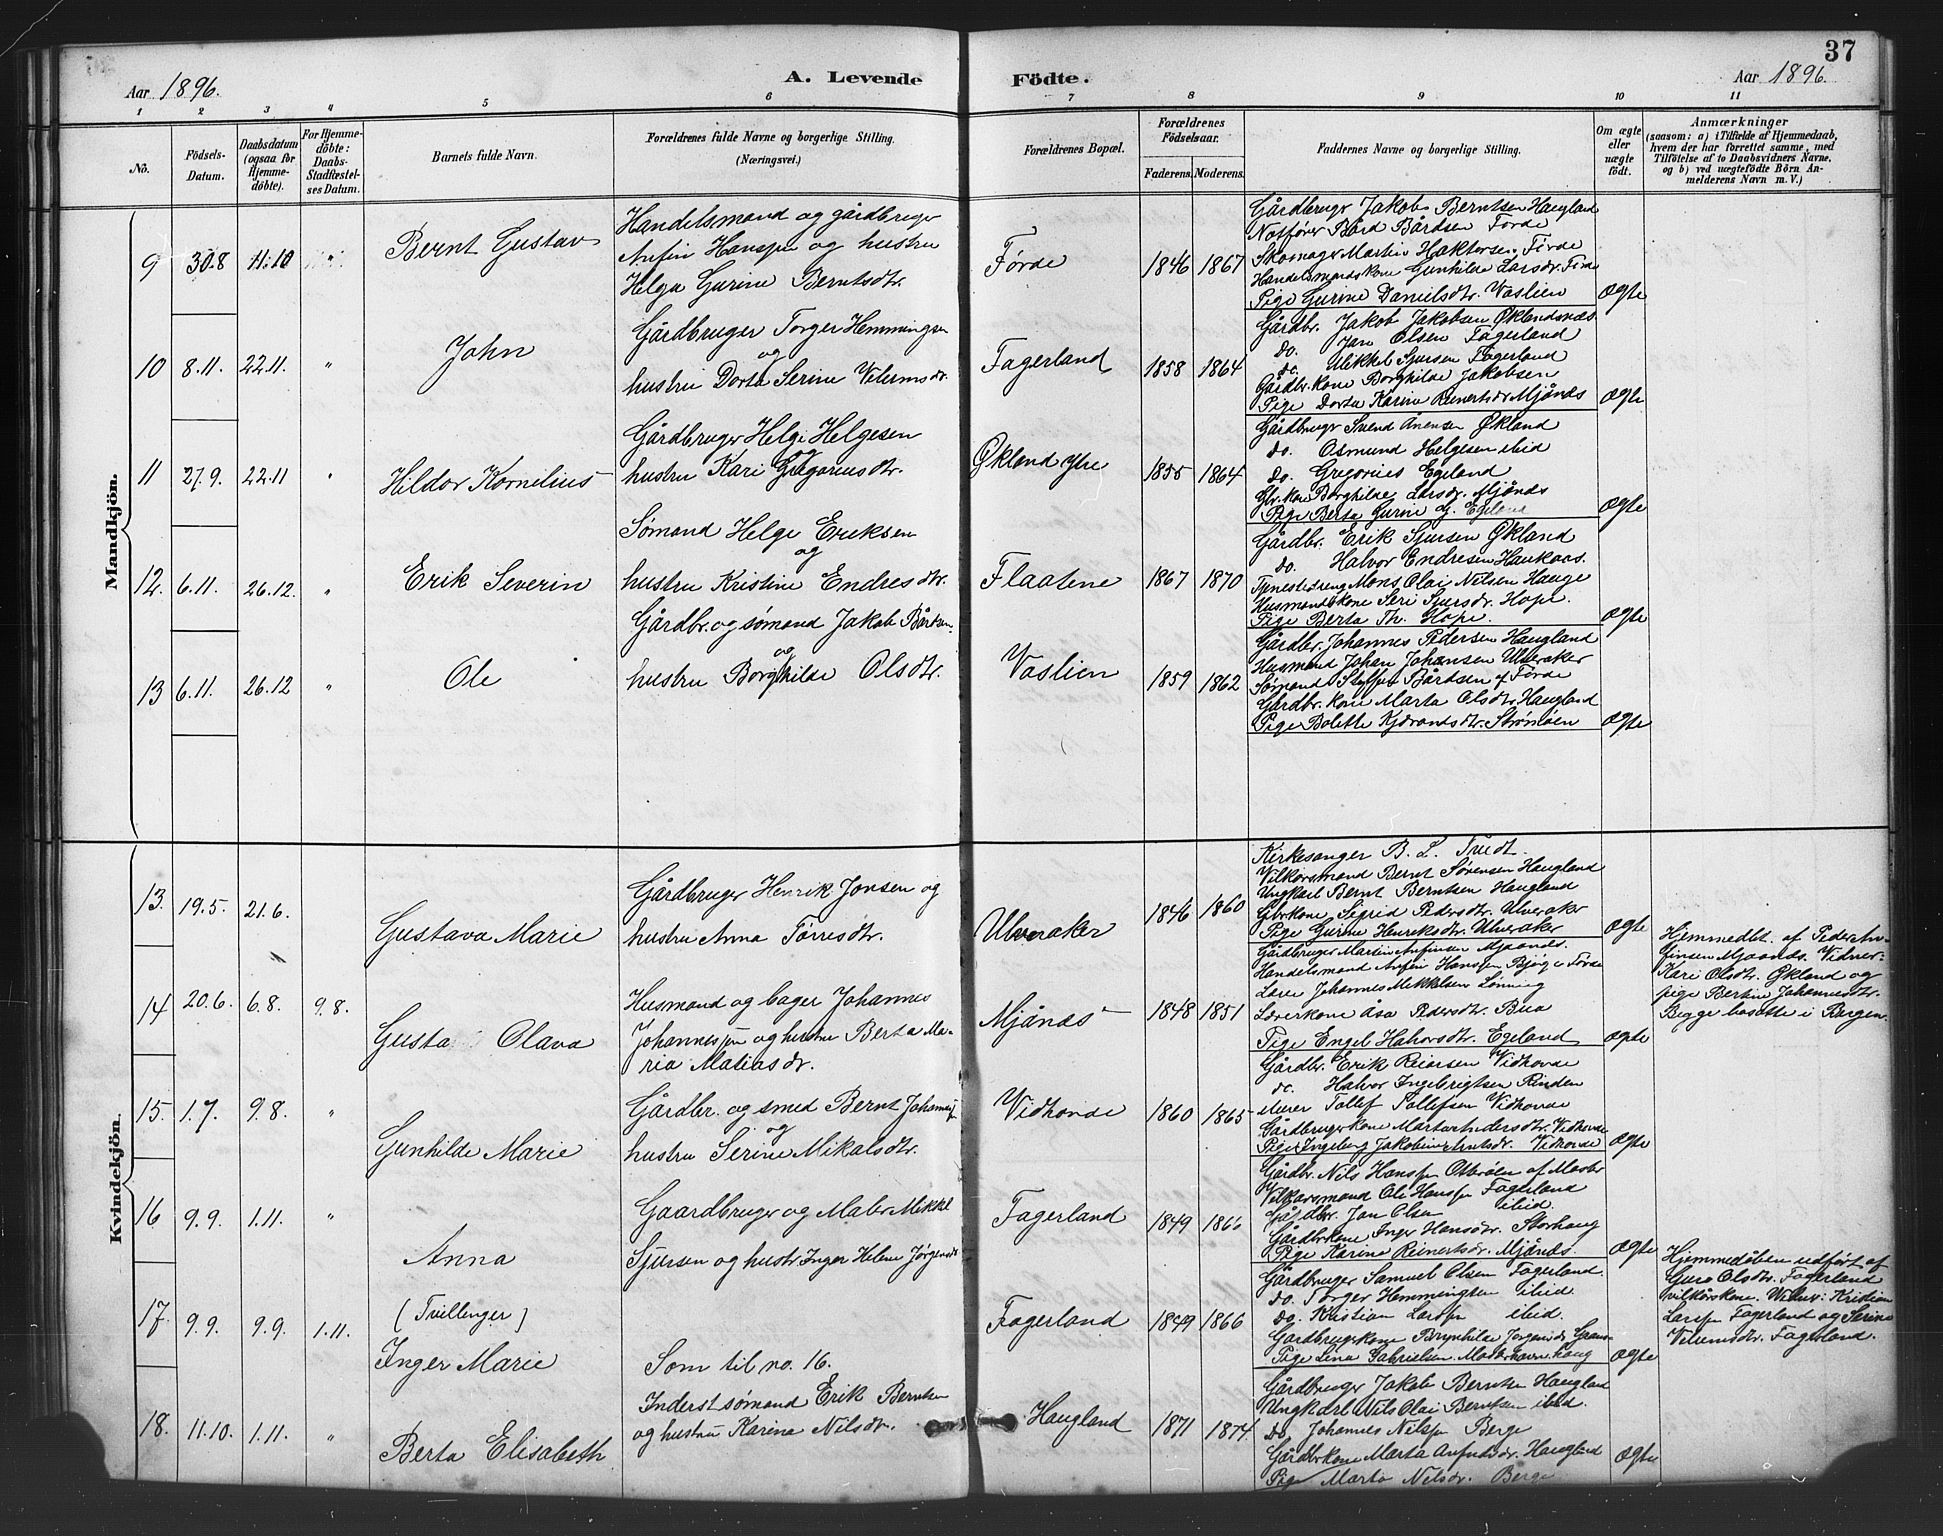 37
Aar 1896.
A. Levende Födte.
Aar 1896.
1 2 3 4 5 6 7 8 9 10 11
No.
Födsels-Datum.
Daabsdatum (ogsaa for Hjemme-döbte).
For Hjemme-döbte: Daabs-Stadfæstel-ses Datum.
Barnets fulde Navn.
Forældrenes fulde Navne og borgerlige Stilling.
(Næringsvei.)
Forældrenes Bopæl.
Forældrenes Födselsaar.
Faderens. Moderens.
Faddernes Navne og borgerlige Stilling.
Om ægte eller uægte födt.
Anmærkninger
(saasom: a) i Tilfælde af Hjemmedaab,
hvem der har forrettet samme, med
Tilföielse af to Daabsvidners Navne,
og b) ved uægtefödte Börn An-
melderens Navn m. V.)
Mandkjön.
9 30.8 11.10 "
Bernt Gustav
Handelsmand og gårdbruger
Anfin Hanssen og hustru
Helga Gurine Berntsdtr.
Førde
1846 1867
Gårdbruger Jakob Berntsen Haugland
Notfører Bård Bårdsen Førde
Skomager Martin Haktorsen Førde
Handelsmandskone Gunhilde Larsdr. Førde
Pige Gurine Danielsdtr. Vaslien
Ægte
10 8.11. 22.11. "
John
Gårdbruger Torger Hemmingsen
og
hustru Dorta Serine Vilumsdr.
Fagerland
1858 1864
Gårdbr. Jakob Jakobsen Øklandsnæs
do. Jan Olsen Fagerland
do. Mikkel Sjursen Fagerland
Gårdbr. kone Borghilde Jakobsen
Pige Dorta Karine Reinertsdr. Mjånds
Ægte
11 27.9. 22.11 "
Hildor Kornelius
Gårdbruger Helge Helgesen
og
hustru Kari Gregoriusdtr.
Økland ytre
1855 1864
Gårdbruger Svend Ånensen Økland
do. Osmund Helgesen ibid
do. Gregorius Egeland
Gbr. kone Borghilde Larsdr. Mjånds
Pige Berta Gurine G. Egeland
Ægte
12. 6.11. 26.12. "
Erik Severin
Sømand Helge Eriksen
og
hustru Kristine Endresdtr.
Flaatene
1867 1870
Gårdbr. Erik Sjursen Økland
do. Halvor Endresen Haukaas
Tjenestedreng Mons Olai Nilsen Hauge
Husmandskone Seri Sjursdr. Hope.
Pige Berta Th. Hope.
Ægte
13 6.11. 26.12 "
Ole
Gårdbr. og sømand Jakob Bårdsen
og
hustru Borghilde Olsdtr.
Vaslien
1859 1862
Gårdbr. Johannes Pedersen Haugland
Husmand Johan Johansen Ulveraker
Sømand Steffen Bårdsen af Førde
Gårdbr. kone Marta Olsdtr. Haugland
Pige Bolette Kjærandsdtr. Strømøen
Ægte
Kvindekjön.
13. 19.5. 21.6.
Gustava Marie
Gårdbruger Henrik Jonsen og
hustru Anna Tørresdtr.
Ulveraker
1846 1860
Kirkesanger B. L. Tvedt.
Vilkårsmand Bernt Sørensen Haugland
Ungkarl Bernt Berntsen Haugland
Gbrkone Sigrid Pedersdtr. Ulveraker
Pige Gurine Henriksdtr. Ulveraker
Ægte
14 20.6. 6.8. 9.8.
Gusta Olava
Husmand og bager Johannes
Johannessen og hustru Berta Ma-
ria Matiasdr.
Mjånds
1848 1851
Gårdbruger Martin Anfinsen Mjaands.
Handelsmand Anfin Hanssen Bjørge Førde
Lærer Johannes Mikkelsen Lønning
Lærerkone Åsa Pedersdtr. Bua
Pige Engel Halvorsdtr. Egeland
Ægte
Hjemmedbt. af Peder An-
finsen Mjaands. Vidner:
Kari Olsdtr. Økland og
pige Bertine Johannesdtr.
Begge bosatte i Bergen.
15. 1.7. 9.8. "
Gunhilde Marie
Gårdbr. og smed Bernt Johanness.
og
hustru Serine Mikalsdtr.
Vidhovde
1860 1865
Gårdbr. Erik Reiarsen Vidhovde
do. Halvor Ingebrigtsen Rinden
Murer Tollef Tollefsen Vidhovde
Gårdbrugerkone Marta Andersdtr. Vidhovde
Pige Ingeborg Jakobine Arntsdr. Vidhovde
Ægte
16 9.9. 1.11. "
Anna
Gaardbruger og Maler Mikkel
Sjursen og hustr Inger Helene Jørgensdr
Fagerland
1849 1866
Gårdbr. Nils Hanssen Osbrøen af Moster
Vilkårsmand Ole Hanssen Fagerland
Gårdbr. Jan Olsen ibid.
Gårdbrkone Inger Hansdtr. Storhaug
Pige Karine Reinertsdr. Mjånds.
Ægte
17. 9.9. 9.9. 1.11.
(Tvillinger)
Inger Marie
Som til no. 16.
Fagerland
1849 1866
Gårdbruger Samuel Olsen Fagerland.
do. Torger Hemmingsen ibid.
do. Kristian Larssen ibid.
Gårdbrugkone Brynhilde Jørgensdr.
Pige Lina Gabrielsen
Ægte
Hjemmedåben udført af
Guro Olsdtr. Fagerland
vilkårkone. Vidner: Kristian
Larssen Fagerland og Serine
Vilumsdtr. Fagerland.
18. 11.10. 1.11. "
Berta Elisabeth
Inderst sømand Erik Berntsen
og hustru Karina Nilsdr.
Haugland
1871 1874
Gårdbruger Jakob Berntsen Haugland
Ungkarl Nils Olai Berntsen ibid.
do Johannes Nilssen Berge
Gårdbrkone Marta Anfindsdr. Haugland
Pige Marta Nilsdr. Berge
Ægte